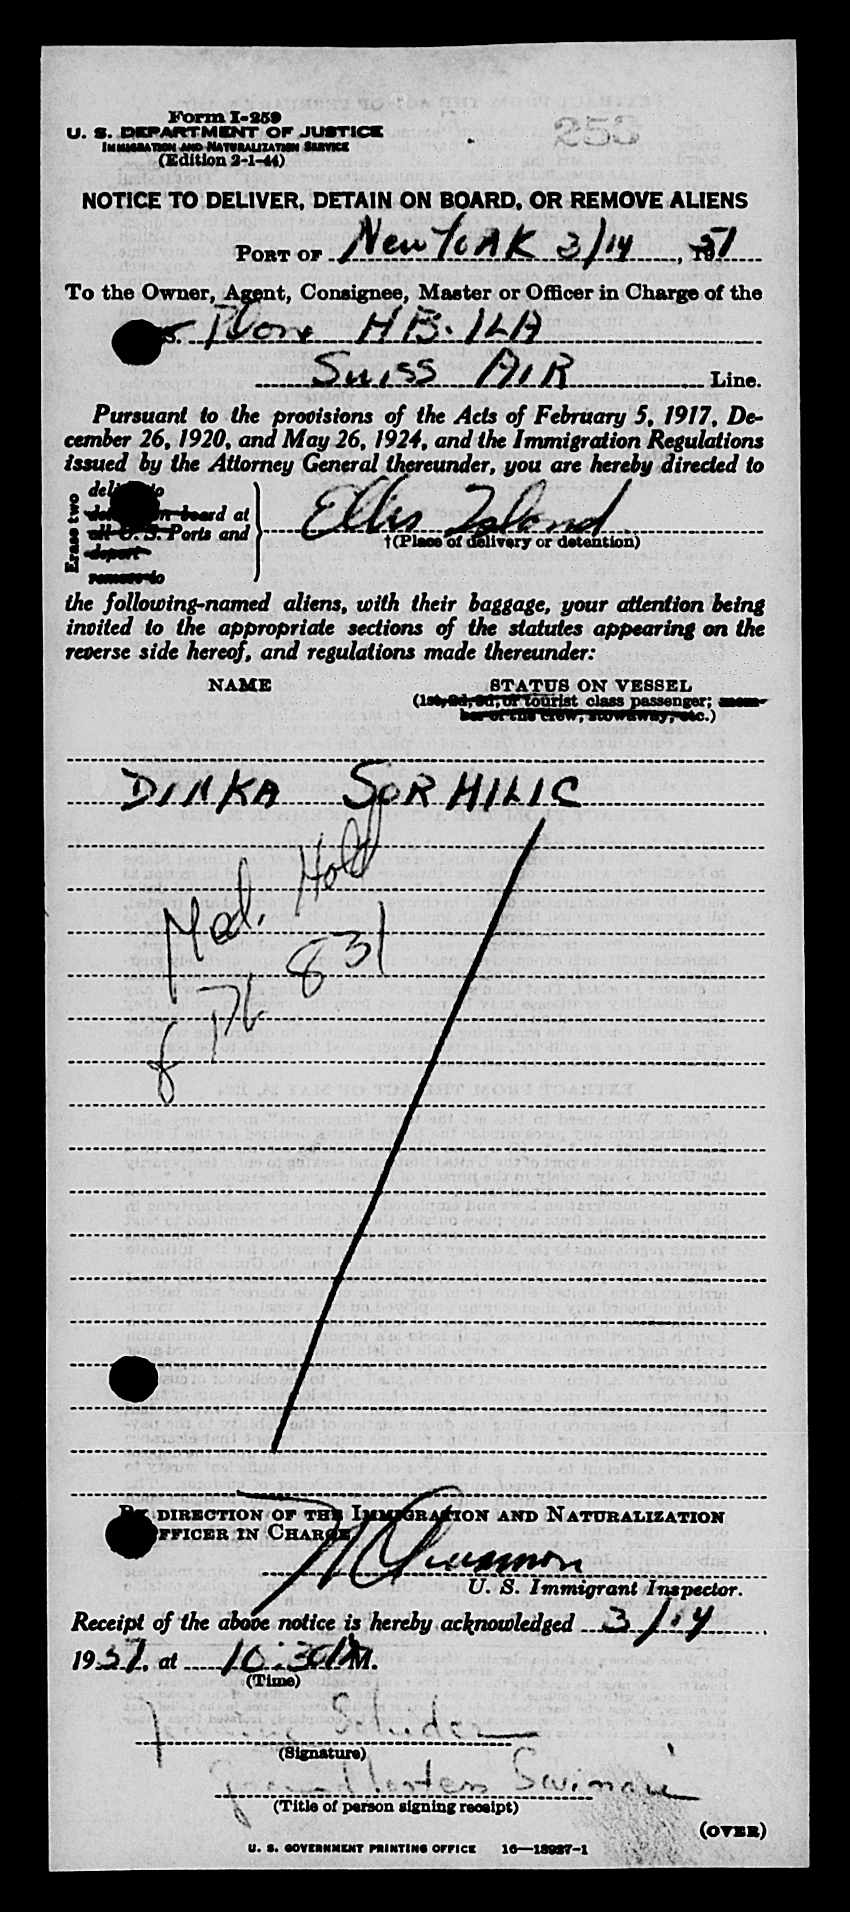 Form I-259
253
U. S. DEPARTMENT OF JUSTICE
IMMIGRATION AND NATURALIZATION SERVICE
(Edition 2-1-44)
NOTICE TO DELIVER, DETAIN ON BOARD, OR REMOVE ALIENS
PORT OF New York 3/14, 1951
To the Owner, Agent, Consignee, Master or Officer in Charge of the
S. Plane HB-ILA
Swiss AIR Line.
Pursuant to the provisions of the Acts of February 5, 1917, De-
cember 26, 1920, and May 26, 1924, and the Immigration Regulations
issued by the Attorney General thereunder, you are hereby directed to
Erase two
deliver to
detain on board at
all U. S. Ports and
depart
remove to
Ellis Island
†(Place of delivery or detention)
the following-named aliens, with their baggage, your attention being
invited to the appropriate sections of the statutes appearing on the
reverse side hereof, and regulations made thereunder:
NAME STATUS ON VESSEL
(1st, 2d, 3d, or tourist class passenger; mem-
ber of the crew, stowaway, etc.)
DINKA SORHILIC
Med. Hold
831
BY DIRECTION OF THE IMMIGRATION AND NATURALIZATION
OFFICER IN CHARGE
U. S. Immigrant Inspector.
Receipt of the above notice is hereby acknowledged 3/14
1951, at 10:30 A M.
(Time)
(Signature)
Groundhostess Swissair
(Title of person signing receipt)
(OVER)
U. S. GOVERNMENT PRINTING OFFICE 16—13927-1